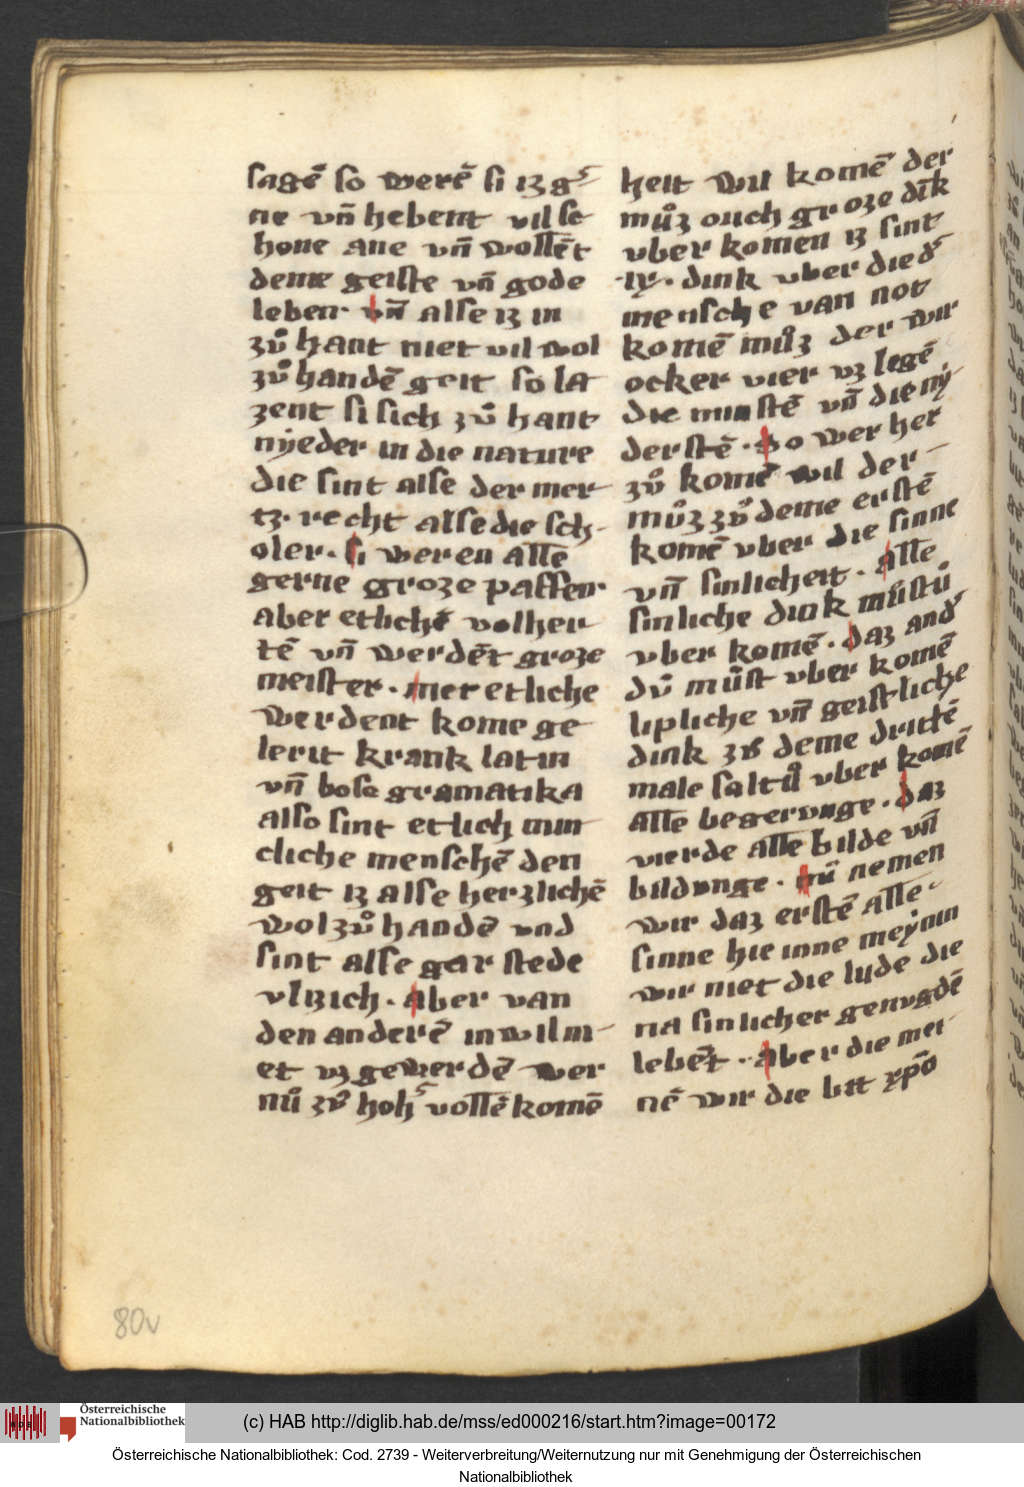 sagē so werē si iz gͤ
ne vn̄ hebent vil sc
hone ane vn̄ wollēt
deme geiste vn̄ gode
leben· vn̄ alse iz in
zuͦ hant niet vil wol
zuͦ handē geit so la
zent si sich zuͦ hant
nyeder in die nature
die sint alse der mer
tz· recht alse die sch
oler· si weren allē
gerne groze paffen·
aber etlichē volher
tē vn̄ werdēt groze
meister· mer etliche
werdent kome ge
lerit krank latin
vn̄ bose gramatika
also sint etlich min
cliche menschē den
geit iz alse herzlichē
wol zuͦ handē vnd
sint alse gar stede
vlizich· aber van
den anderē in wil m
et vz gewerdē wer
nuͦ zuͦ hoh' vollē komē
heit wil komē der
muͦz ouch groze dīk
vber komen iz sint
·ix· dink vber die d'
mensche van not
komē muͦz der wir
ocker vier vz legē
die minstē vn̄ die ny
derstē· So wer her
zuͦ komē wil der
muͦz zuͦ deme erstē
komē vber die sinne
vn̄ sinlicheit· alle
sinliche dink muͦstu
vber komē· daz and'
du muͦst vber komē
lipliche vn̄ geistliche
dink zuͦ deme drittē
male saltu vber komē
alle begerunge· daz
vierde alle bilde vn̄
bildunge· nu nemen
wir daz erstē alle
sinne hie inne meynin
wir niet die lude die
na sinlicher genugdē
lebēt·· aber die mei
nē wir die bit xp̄o
80v
Österreichische
Nationalbibliothek
(c) HAB http://diglib.hab.de/mss/ed000216/start.htm?image=00172
Österreichische Nationalbibliothek: Cod. 2739 - Weiterverbreitung/Weiternutzung nur mit Genehmigung der Österreichischen
Nationalbibliothek